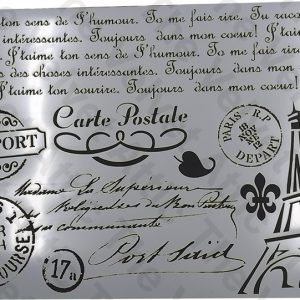 ton sens de l'humour. Tu me fais rire. Tu raco
intéressantes. Toujours dans mon coeur! J'aim
J'aime ton sens de l'humour. Tu me fais rire.
s des choses intéressantes. Toujours dans mon
J'aime ton sourire. Toujours dans mon coeur!
Carte Postale
PARIS - R.P
DEPART
PORT
Madame La Supérieur
Religieuses de Bon
communauté
Port Saïd
17a